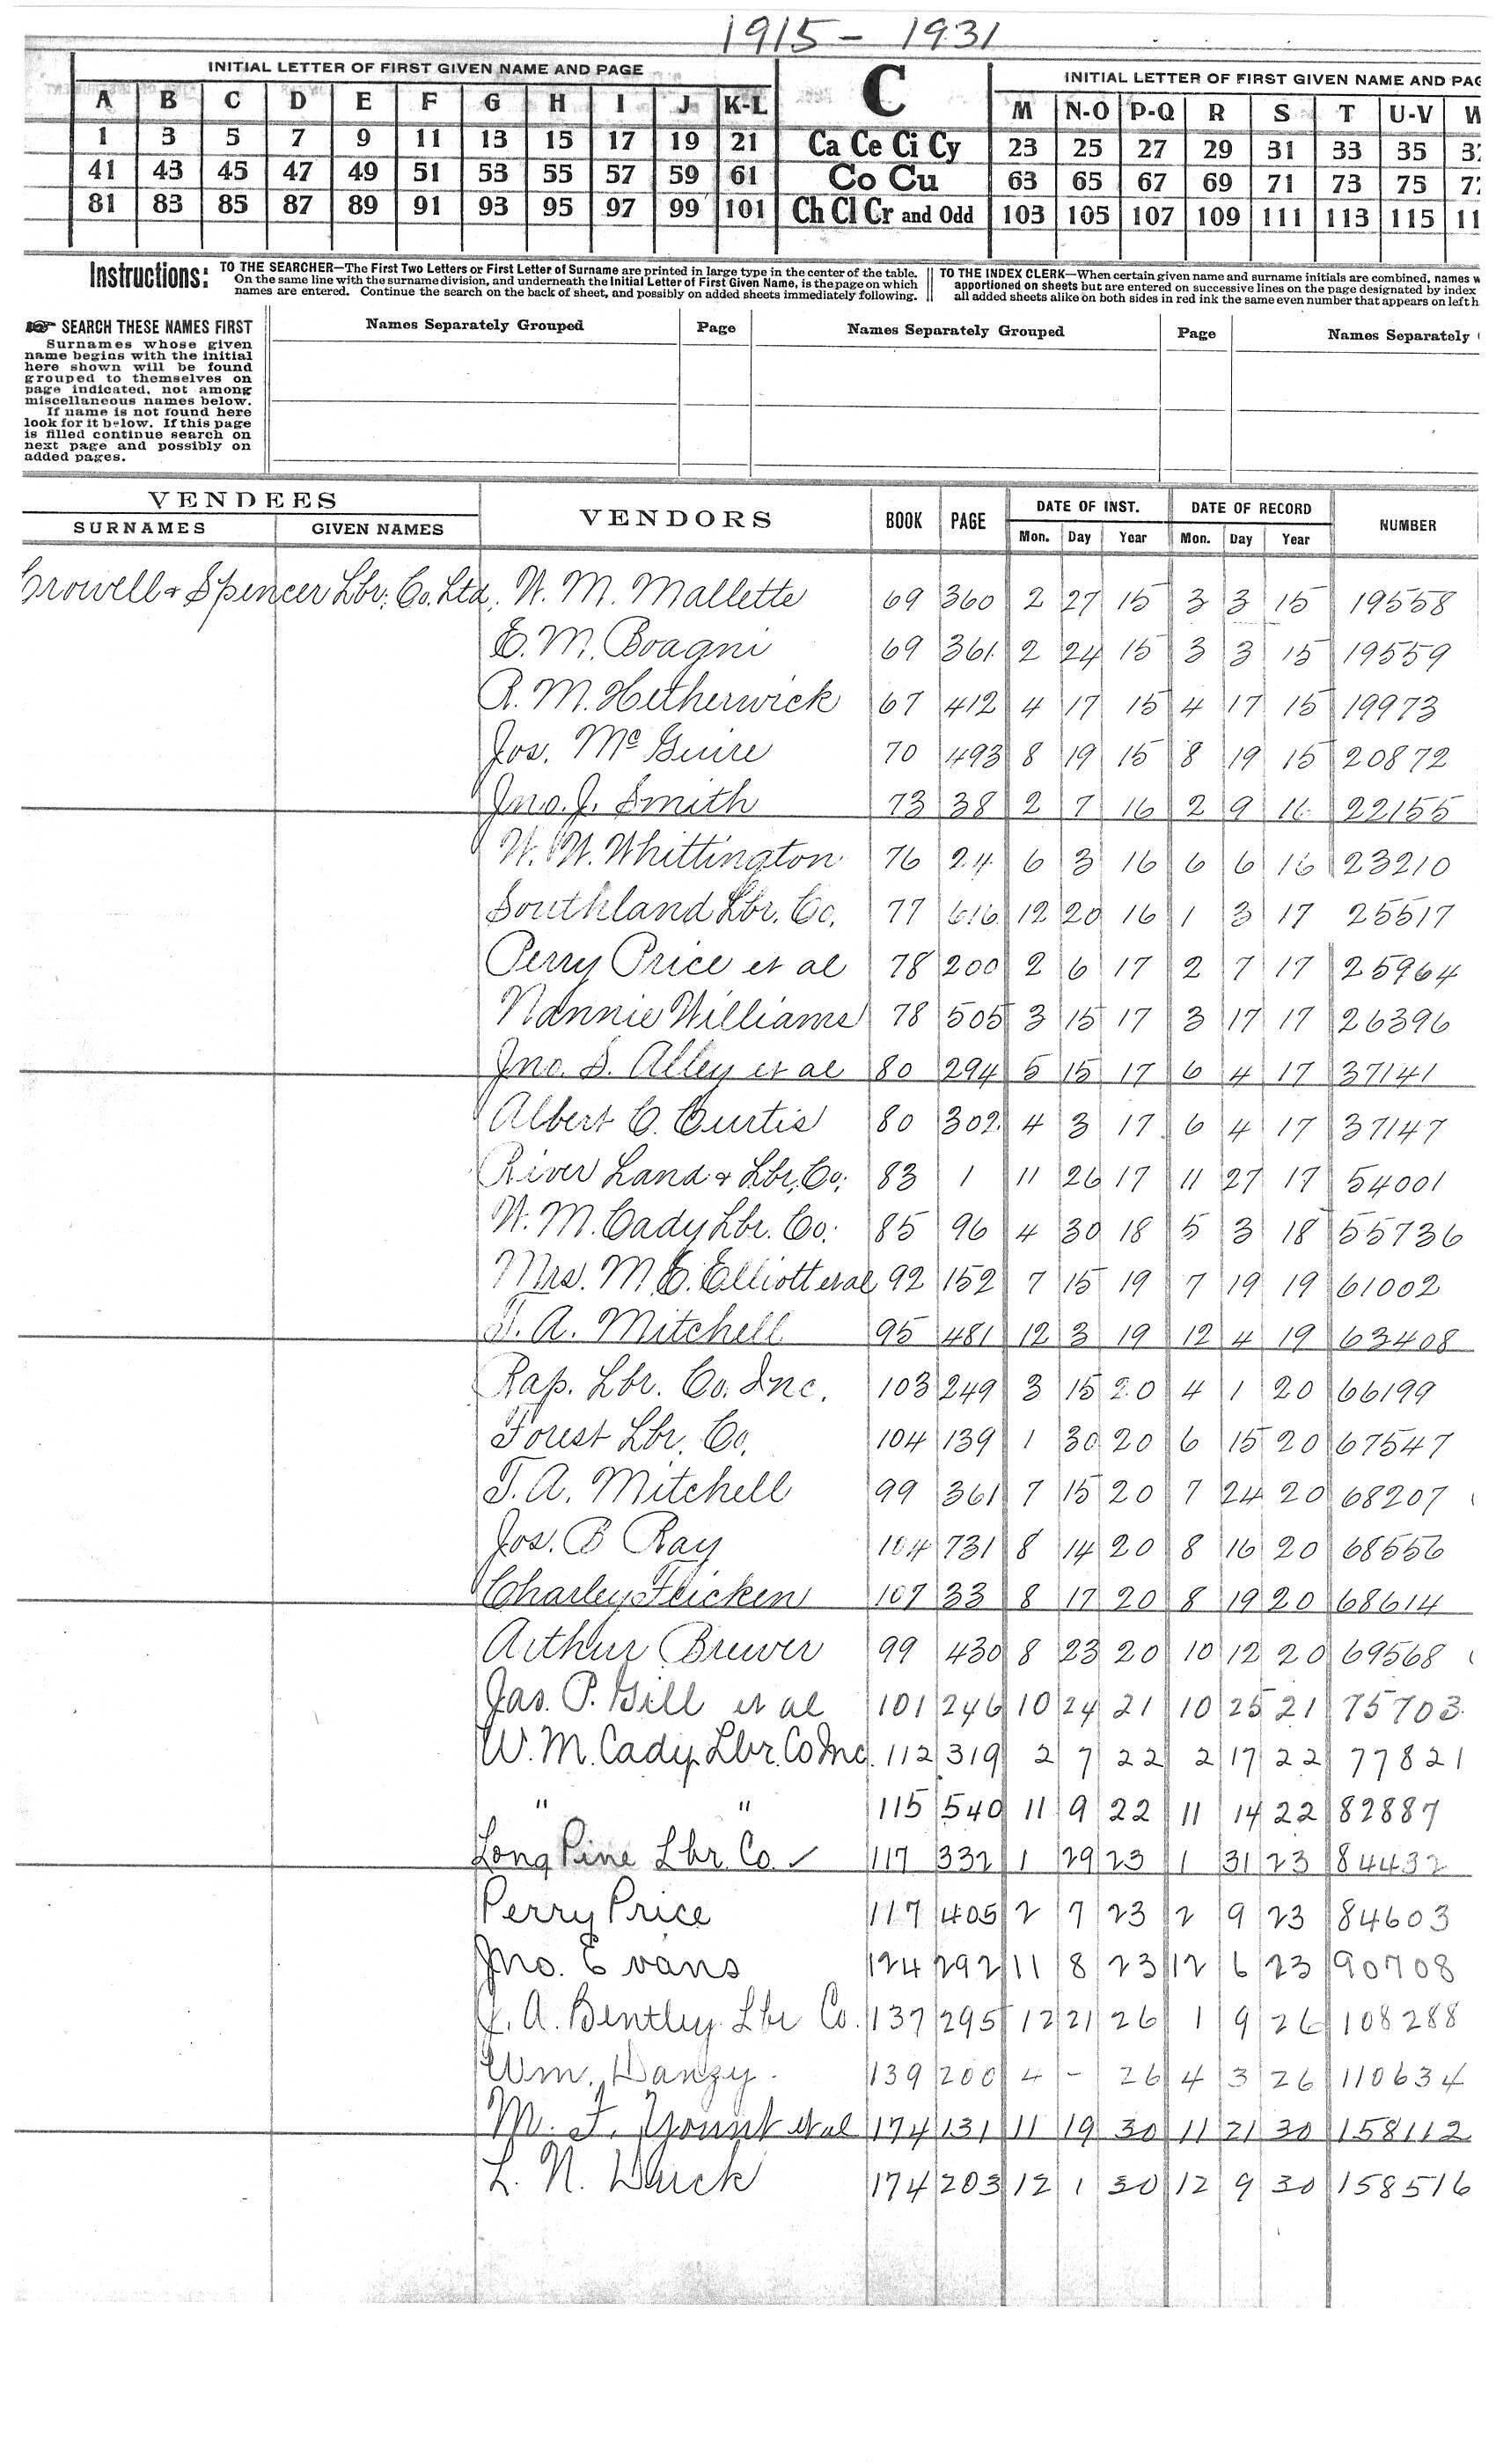 1915 - 1931
INITIAL LETTER OF FIRST GIVEN NAME AND PAGE C INITIAL LETTER OF FIRST GIVEN NAME AND PAG
A B C D E F G H I J K-L M N-O P-Q R S T U-V W
1 3 5 7 9 11 13 15 17 19 21 Ca Ce Ci Cy 23 25 27 29 31 33 35 3
41 43 45 47 49 51 53 55 57 59 61 Co Cu 63 65 67 69 71 73 75 7
81 83 85 87 89 91 93 95 97 99 101 Ch Cl Cr and Odd 103 105 107 109 111 113 115 11
Instructions: TO THE SEARCHER—The First Two Letters or First Letter of Surname are printed in large type in the center of the table.
On the same line with the surname division, and underneath the Initial Letter of First Given Name, is the page on which
names are entered. Continue the search on the back of sheet, and possibly on added sheets immediately following.
TO THE INDEX CLERK—When certain given name and surname initials are combined, names w
apportioned on sheets but are entered on successive lines on the page designated by index
all added sheets alike on both sides in red ink the same even number that appears on left h
SEARCH THESE NAMES FIRST
Surnames whose given
name begins with the initial
here shown will be found
grouped to themselves on
page indicated, not among
miscellaneous names below.
If name is not found here
look for it below. If this page
is filled continue search on
next page and possibly on
added pages.
Names Separately Grouped Page Names Separately Grouped Page Names Separately
VENDEES VENDORS BOOK PAGE DATE OF INST. DATE OF RECORD NUMBER
SURNAMES GIVEN NAMES Mon. Day Year Mon. Day Year
Crowell & Spencer Lbr. Co. Ltd. W. M. Mallette 69 360 2 27 15 3 3 15 19558
E. M. Boagni 69 361 2 24 15 3 3 15 19559
R. M. Hetherwick 67 412 4 17 15 4 17 15 19973
Jos. McGuire 70 493 8 19 15 8 19 15 20872
Jno. J. Smith 73 38 2 7 16 2 9 16 22155
W. W. Whittington 76 24 6 3 16 6 6 16 23210
Southland Lbr. Co. 77 616 12 20 16 1 3 17 25517
Perry Price et al 78 200 2 6 17 2 7 17 25964
Nannie Williams 78 505 3 15 17 3 17 17 26396
Jno. S. Alley et al 80 294 5 15 17 6 4 17 37141
Albert C. Curtis 80 302 4 3 17 6 4 17 37147
River Land & Lbr. Co. 83 1 11 26 17 11 27 17 54001
W. M. Cady Lbr. Co. 85 96 4 30 18 5 3 18 55736
Mrs. M. E. Elliott et al 92 152 7 15 19 7 19 19 61002
T. A. Mitchell 95 481 12 3 19 12 4 19 63408
Rap. Lbr. Co. Inc. 103 249 3 15 20 4 1 20 66199
Forest Lbr. Co. 104 139 1 30 20 6 15 20 67547
T. A. Mitchell 99 361 7 15 20 7 24 20 68207
Jos. B Ray 104 731 8 14 20 8 16 20 68556
Charley Flicken 107 33 8 17 20 8 19 20 68614
Arthur Brewer 99 430 8 23 20 10 12 20 69568
Jas. P. Gill et al 101 246 10 24 21 10 25 21 75703
W. M. Cady Lbr. Co Inc. 112 319 2 7 22 2 17 22 77821
" " 115 540 11 9 22 11 14 22 82887
Long Pine Lbr. Co. ✓ 117 332 1 29 23 1 31 23 84432
Perry Price 117 405 2 7 23 2 9 23 84603
Jno. Evans 124 292 11 8 23 12 6 23 90708
J. A. Bentley Lbr Co. 137 295 12 21 26 1 9 26 108288
Wm. Danzy 139 200 4 - 26 4 3 26 110634
M. F. Yount et al 174 131 11 19 30 11 21 30 158112
L. N. 174 203 12 1 30 12 9 30 158516